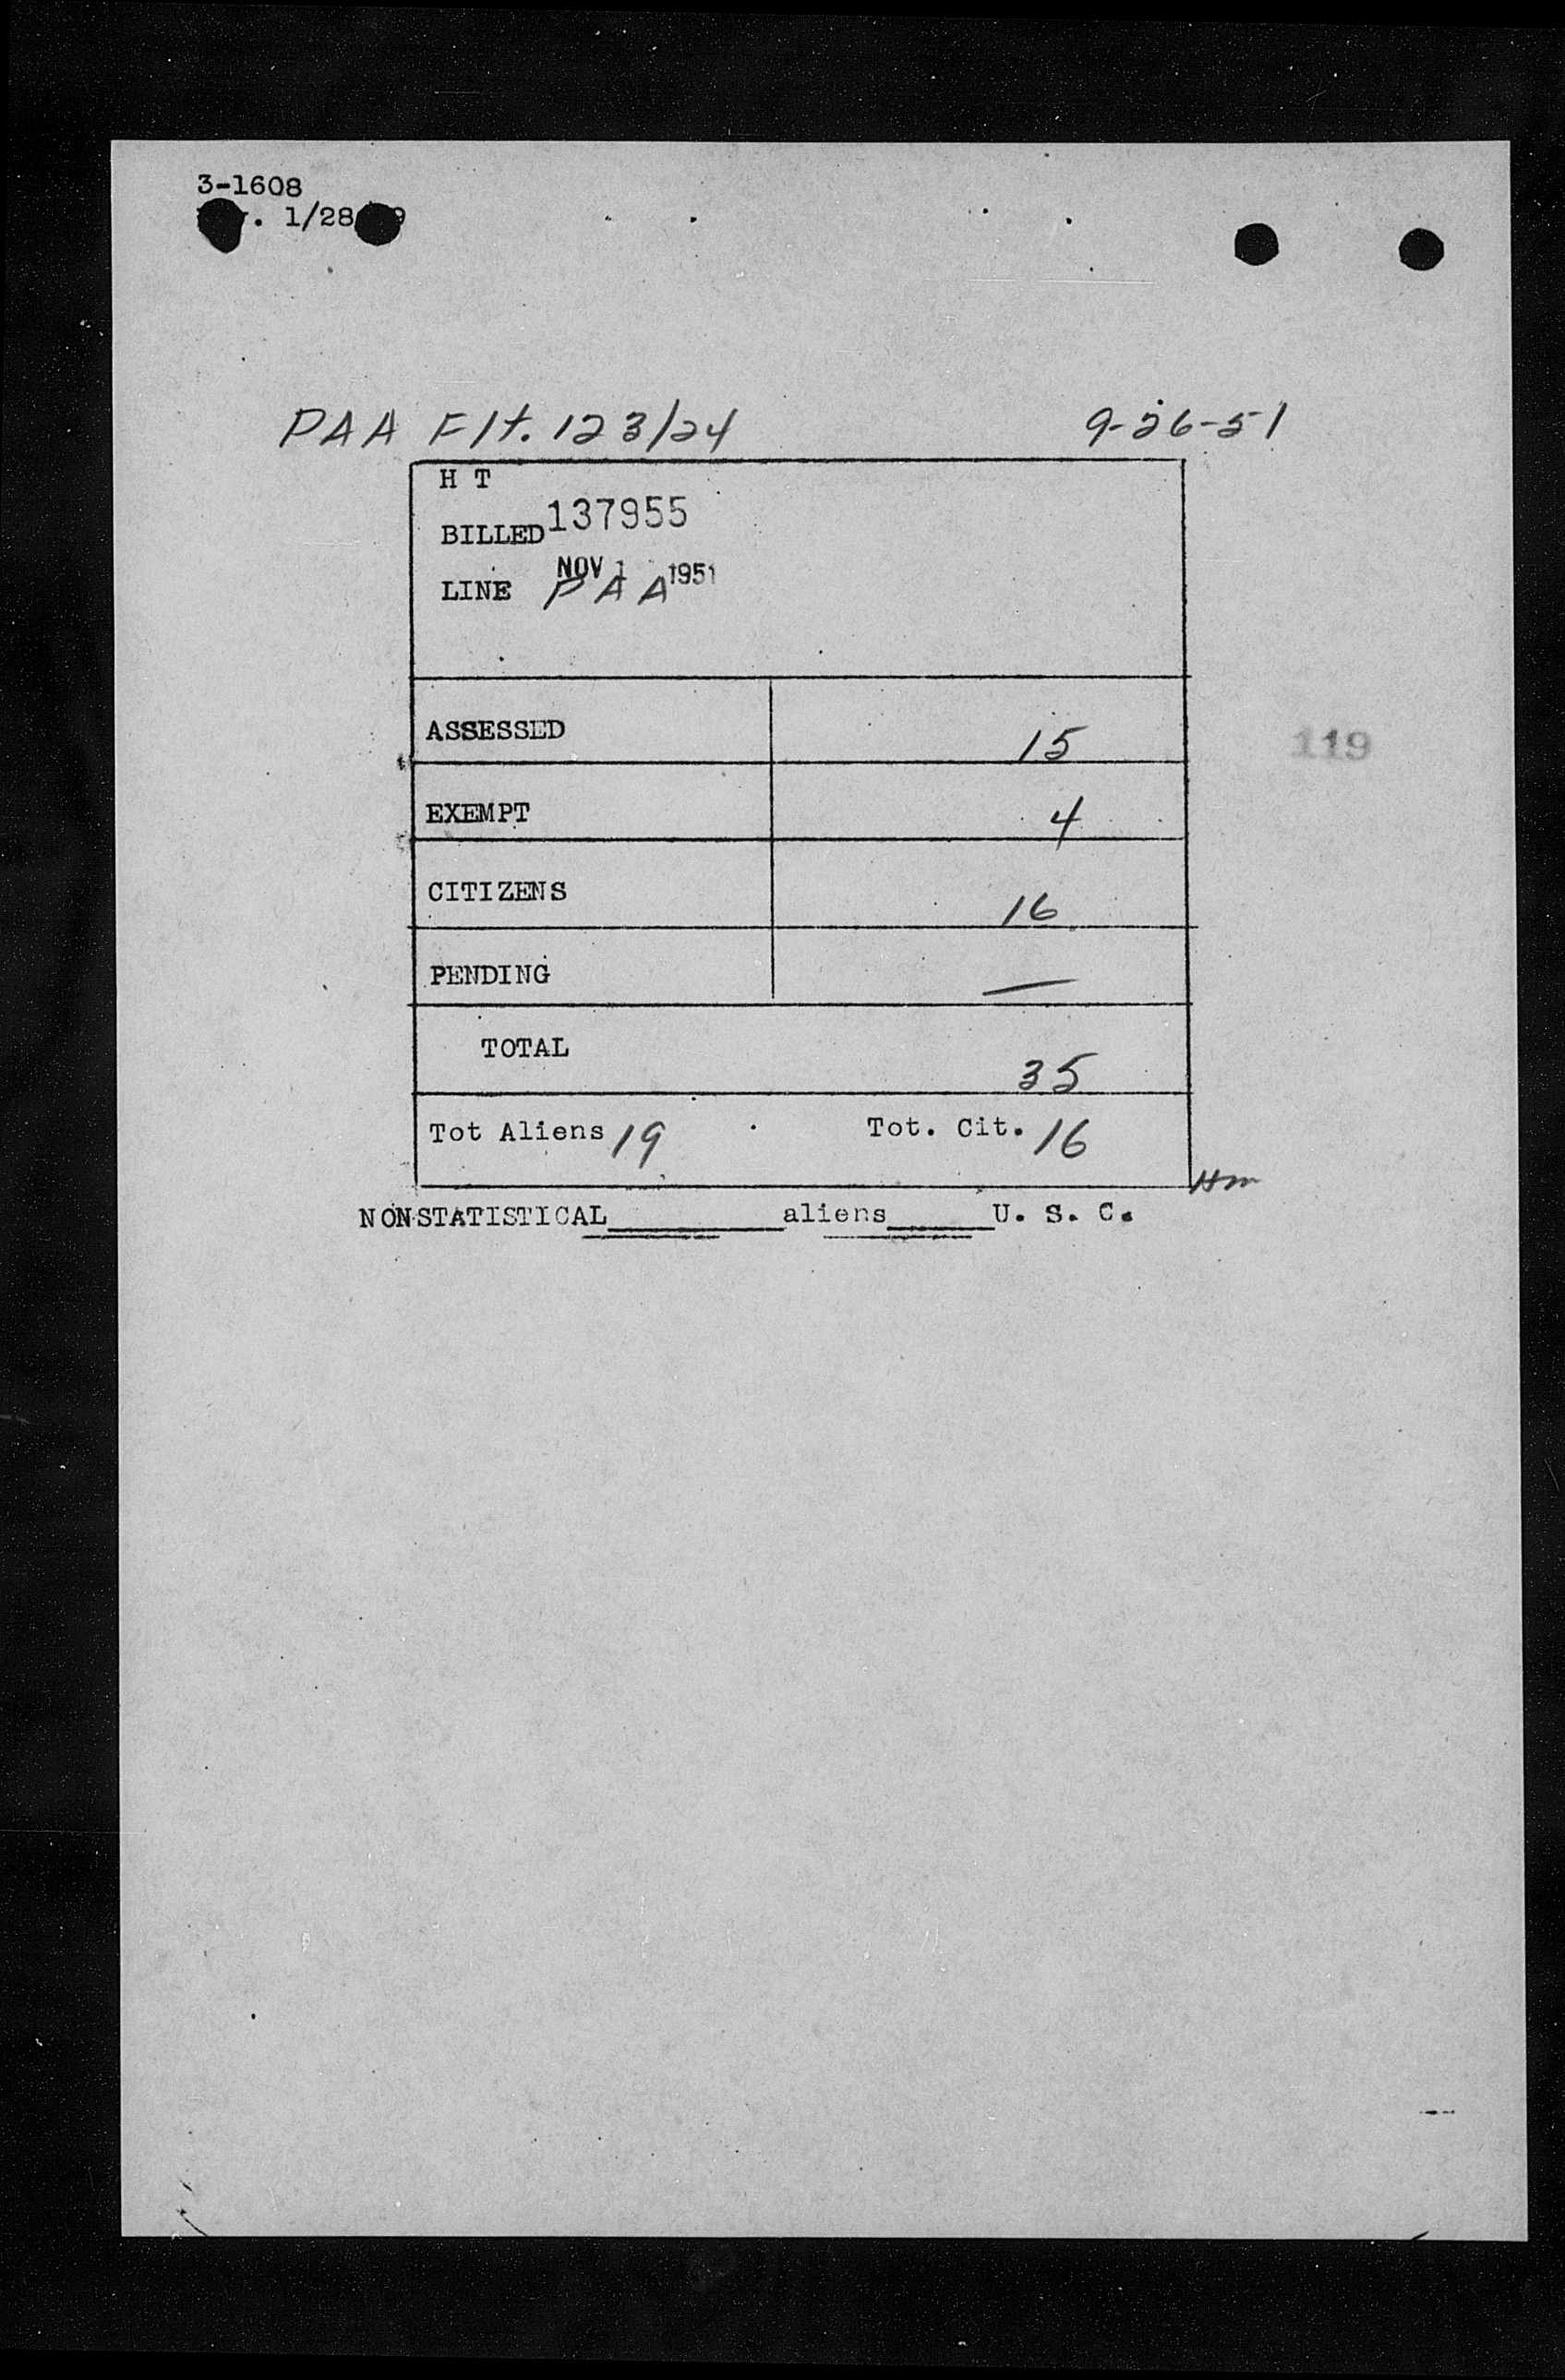 3-1608
1/28
PAA Flt. 123/24 9-26-51
H T
BILLED 137955
NOV 1 1951
LINE PAA
ASSESSED 15
119
EXEMPT 4
CITIZENS 16
PENDING —
TOTAL 35
Tot Aliens 19 Tot. Cit. 16
Hm
NONSTATISTICAL______aliens______U. S. C.